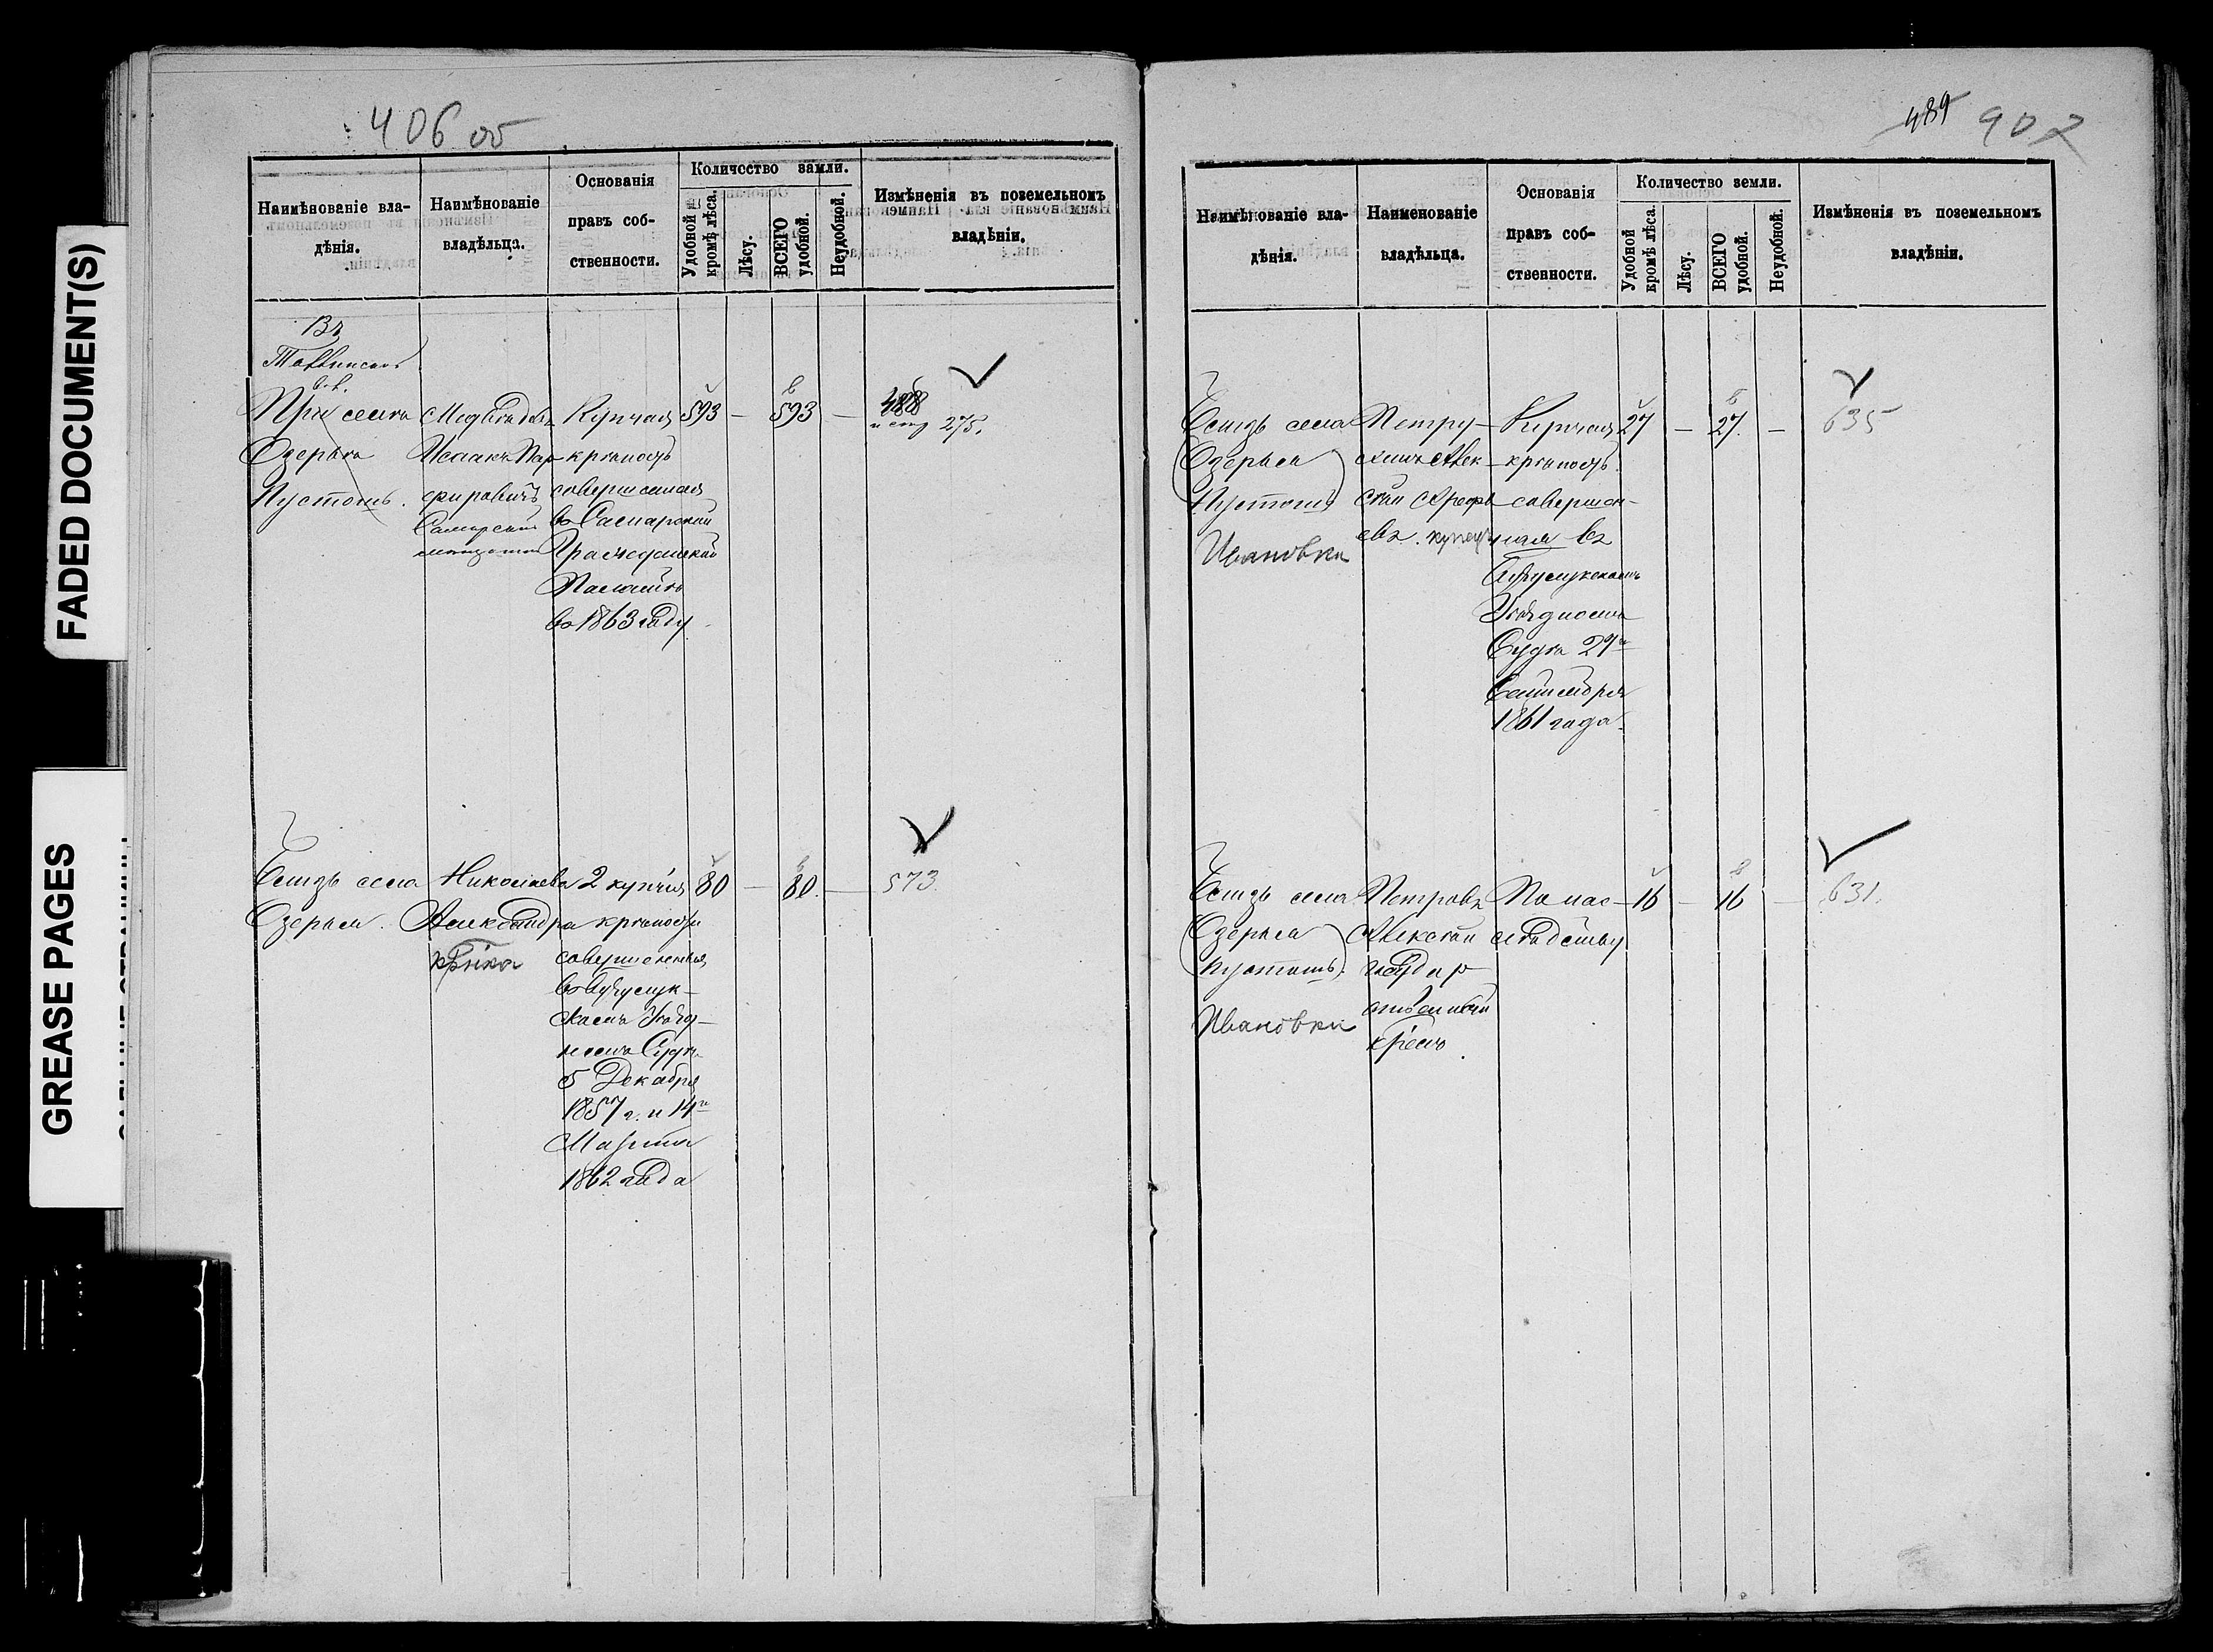 FADED DOCUMENT(S)
GREASE PAGES
406 об
Наимѣнованіе вла-
дѣнія.
Наимѣнованіе
владѣльца.
Основанія
правъ соб-
ственности.
Количество земли.
Удобной
кромѣ лѣса.
Лѣсу.
ВСЕГО
удобной.
Неудобной.
Измѣненія въ поземельномъ
владѣніи.
Въ
При селѣ
Озеркѣ
Пустошь.
Исаакъ Пар-
фировичъ
Самарскій
Купчая
крѣпость
совершенная
въ Самарской
Гражданской
Палатѣ
въ 1863 году
593 — 593 —
488
и стр 275.
Близь села
Озерки.
Николаева
Александра
2 купчія
крѣпости
совершенныя
въ Бузулук-
скомъ Уѣзд-
номъ Судѣ
5 Декабря
1857 г. и 14го
Марта
1862 года
80 — 80. —
573.
489 407
Наимѣнованіе вла-
дѣнія.
Наименованіе
владѣльца.
Основанія
правъ соб-
ственности.
Количество земли.
Удобной
кромѣ лѣса.
Лѣсу.
ВСЕГО
удобной.
Неудобной.
Измѣненія въ поземельномъ
владѣніи.
Близь села
Озерки
Пустошь)
Ивановка
Петру-
хинъ Алек-
сѣй Арефь-
евъ. купецъ
Купчая
крѣпость
совершен-
ная въ
Бузулукскомъ
Уѣздномъ
Судѣ 29го
Сентября
1861 года.
27 — 27. —
635
Близь села
(Озерки
пустошь).
Ивановка
Петровъ
Алексѣй
государ
ственный
крест
По нас-
лѣдству
16 — 16 —
631.